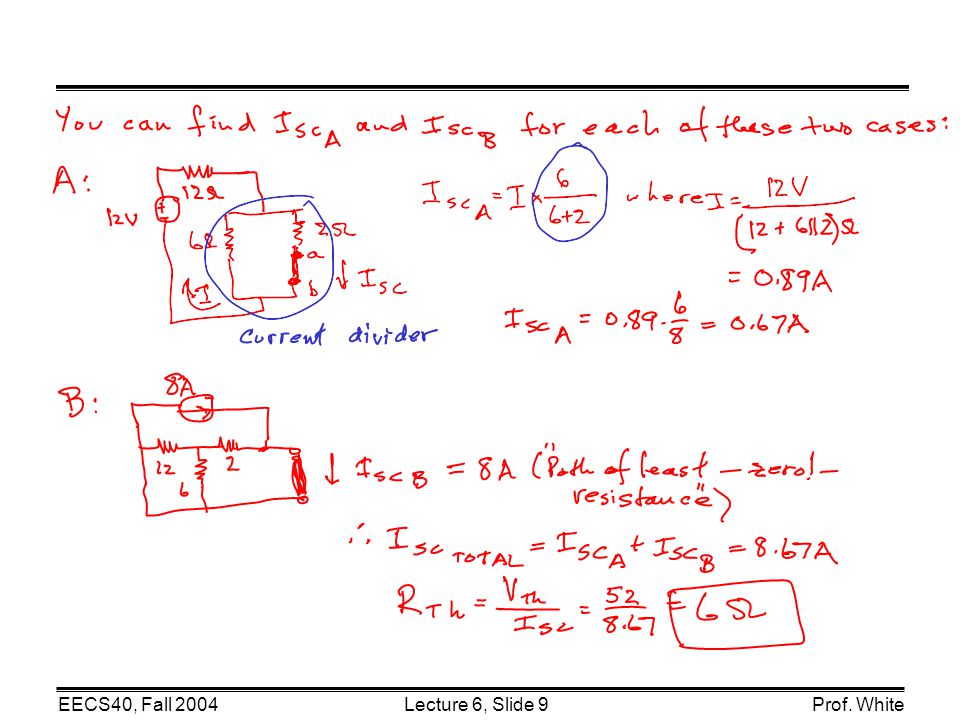 You can find I SC A and I SC B for each of these two cases:
A:
12Ω
12V
6Ω
2Ω
a
b
↓ I SC
I
current divider
I SC A = I × 6/(6+2) where I = 12V/(12 + 6||2)Ω
= 0.89A
I SC A = 0.89 · 6/8 = 0.67A
B:
8A
12
2
6
↓ I SC B = 8A ("Path of least – zero! –
resistance")
∴ I SC TOTAL = I SC A + I SC B = 8.67A
R Th = V Th / I SC = 52/8.67 = 6Ω
EECS40, Fall 2004 Lecture 6, Slide 9 Prof. White